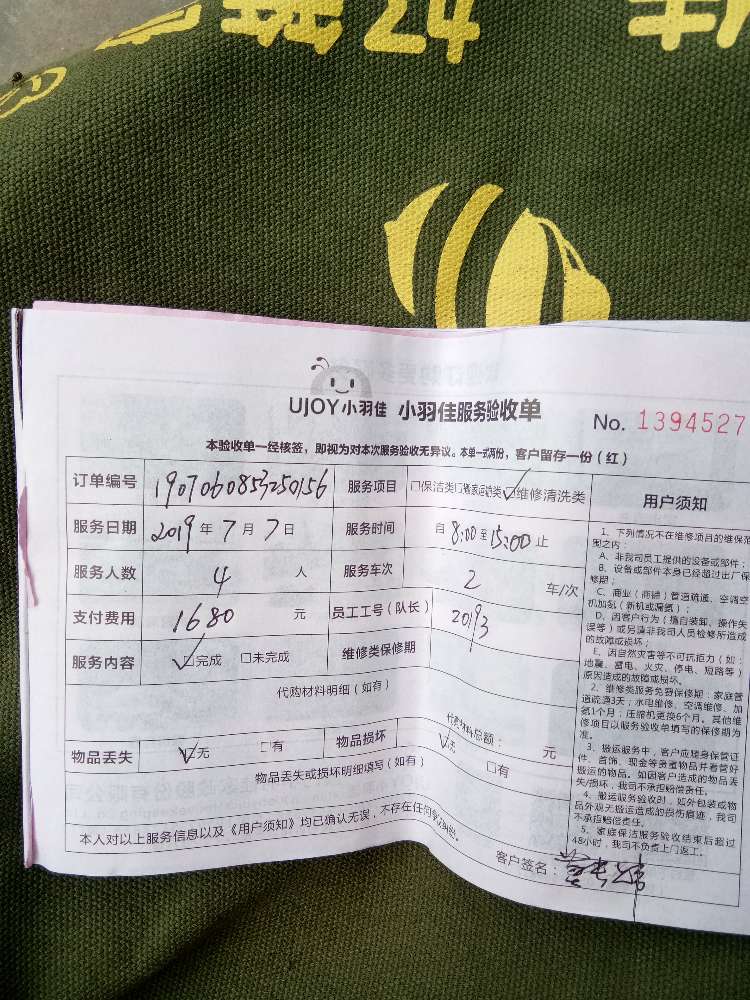 UJOY小羽佳 小羽佳服务验收单 No. 1394527
本验收单一经核签，即视为对本次服务验收无异议。本单一式两份，客户留存一份（红）
订单编号 1907060853250156 服务项目 □保洁类□搬家运输类☑维修清洗类
服务日期 2019年7月7日 服务时间 自8:00至15:00止
服务人数 4 人 服务车次 2 车/次
支付费用 1680 元 员工工号（队长） 20193
服务内容 ☑完成 □未完成 维修类保修期
代购材料明细（如有）
代购材料总额： 元
物品丢失 ☑无 □有 物品损坏 ☑无 □有
物品丢失或损坏明细填写（如有）
本人对以上服务信息以及《用户须知》均已确认无误，不存在任何
客户签名：
用户须知
1、下列情况不在维修项目的维保范
围之内：
A、非我司员工提供的设备或部件；
B、设备或部件本身已经超过出厂保
修期；
C、商业（商铺）管道疏通、空调空
机加氨（新机或漏氨）；
D、因客户行为（擅自装卸、操作失
误等）或另请非我司人员检修所造成
的故障或损坏；
E、因自然灾害等不可抗拒力（如：
地震、雷电、火灾、停电、短路等）
原因造成的故障或损坏。
2、维修类服务免费保修期：家庭管
道疏通3天；水电维修、空调维修、加
氨1个月；压缩机更换6个月。其他维
修项目以服务验收单填写的保修期为
准。
3、搬运服务中，客户应随身保管证
件、首饰、现金等贵重物品并看管好
搬运的物品。如因客户造成的物品丢
失/损坏，我司不承担赔偿责任。
4、搬运服务验收时，如外包装或物
品外观无搬运造成的损伤痕迹，我司
不承担赔偿责任。
5、家庭保洁服务验收结束后超过
48小时，我司不负责上门返工。